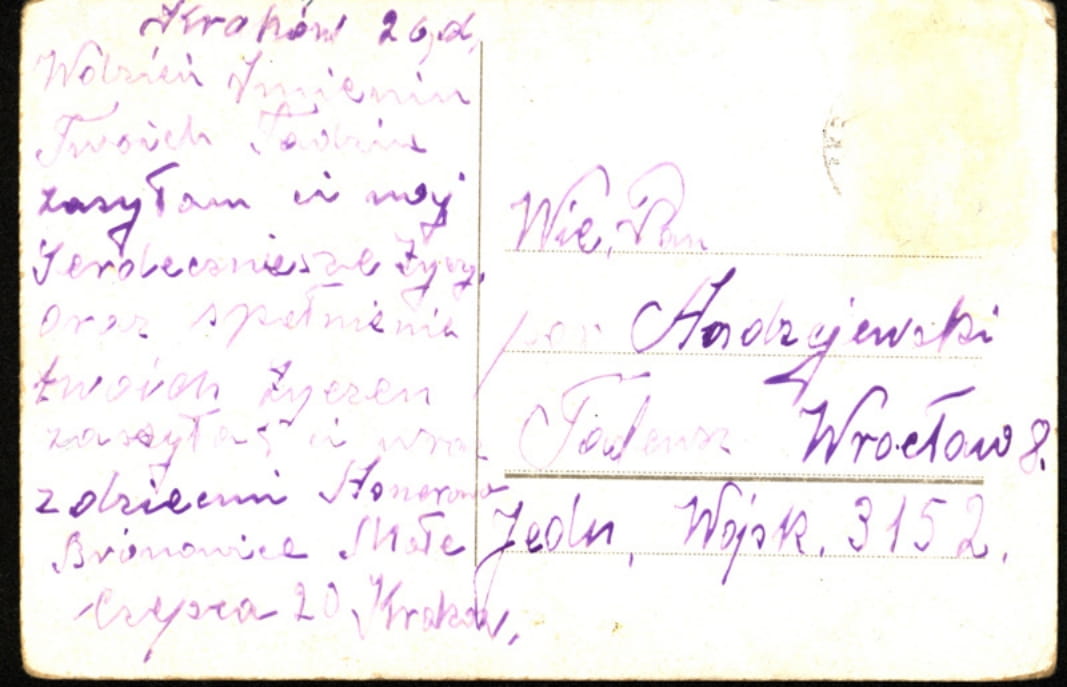 Kraków 26, d,
W dzień Imienin
Twoich Tadziu
zasyłam ci moj
Serdeczniesze Życzy,
oraz spełnienia
twoich Życzen
zasyłaś ci wraz
z dziecmi
Bronowice Małe
Czepca 20 Kraków,
Wie, Pan
por Andrzejewski
Tadeusz Wrocław 8.
Jedn, Wojsk. 3152.